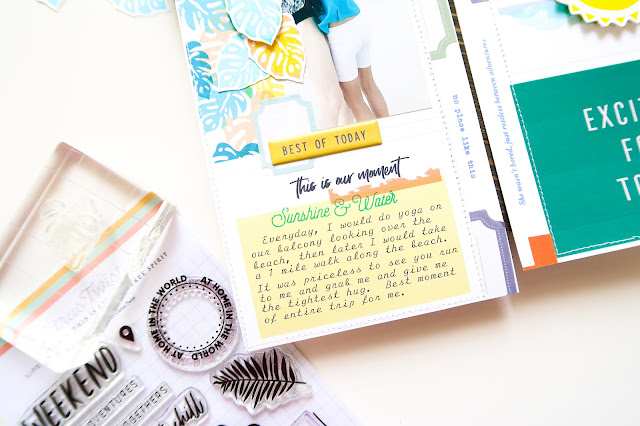 BEST OF TODAY
this is our moment
Sunshine & Water
Everyday, I would do yoga on
our balcony looking over the
beach, then later I would take
a 1 mile walk along the beach.
It was priceless to see you run
to me and grab me and give me
the tightest hug. Best moment
of entire trip for me.
no place like this
She wasn't bored, just restless between adventures.
EXCI
FO
TO
AT HOME IN THE WORLD
AT HOME IN THE WORLD
WEEKEND
ADVENTURES
TOGETHERS
chill
SPIRIT